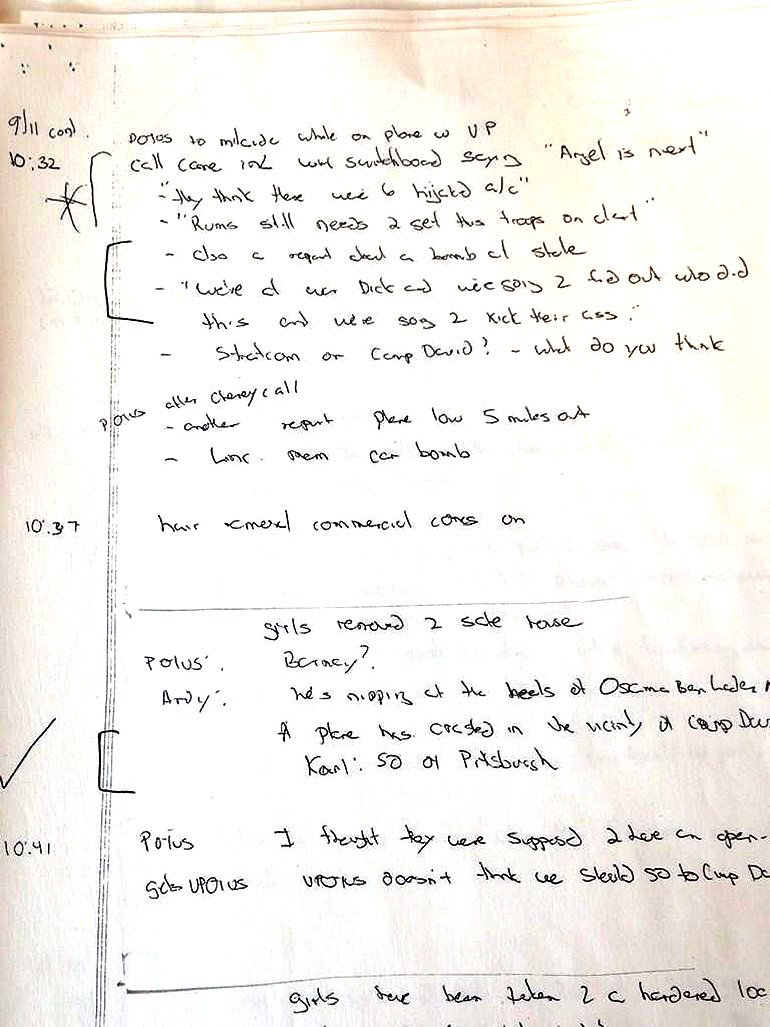 9/11 cont.
POTUS to milaide while on plane w VP
10:32
call came into WH switchboard saying "Angel is next"
- "they think there were 6 hijacked a/c"
- "Rums still needs 2 get his troops on alert"
- also a report about a bomb at state
- "we're at war Dick and we're going 2 find out who did
this and we're going 2 kick their ass."
- Stratcom or Camp David? - what do you think
POTUS after Cheney call
- another report plane low 5 miles out
- Linc. mem car bomb
10:37
hair removal commercial comes on
girls removed 2 safe house
POTUS: Barney?
Andy: he's nipping at the heels of Osama Ben Laden
A plane has crashed in the vicinity of Camp Dav
Karl: SO of Pittsburgh
10:41
POTUS I thought they were supposed 2 have an open-
gets VPOTUS VPOTUS doesn't think we should go to Camp Da
girls have been taken 2 a hardened loc